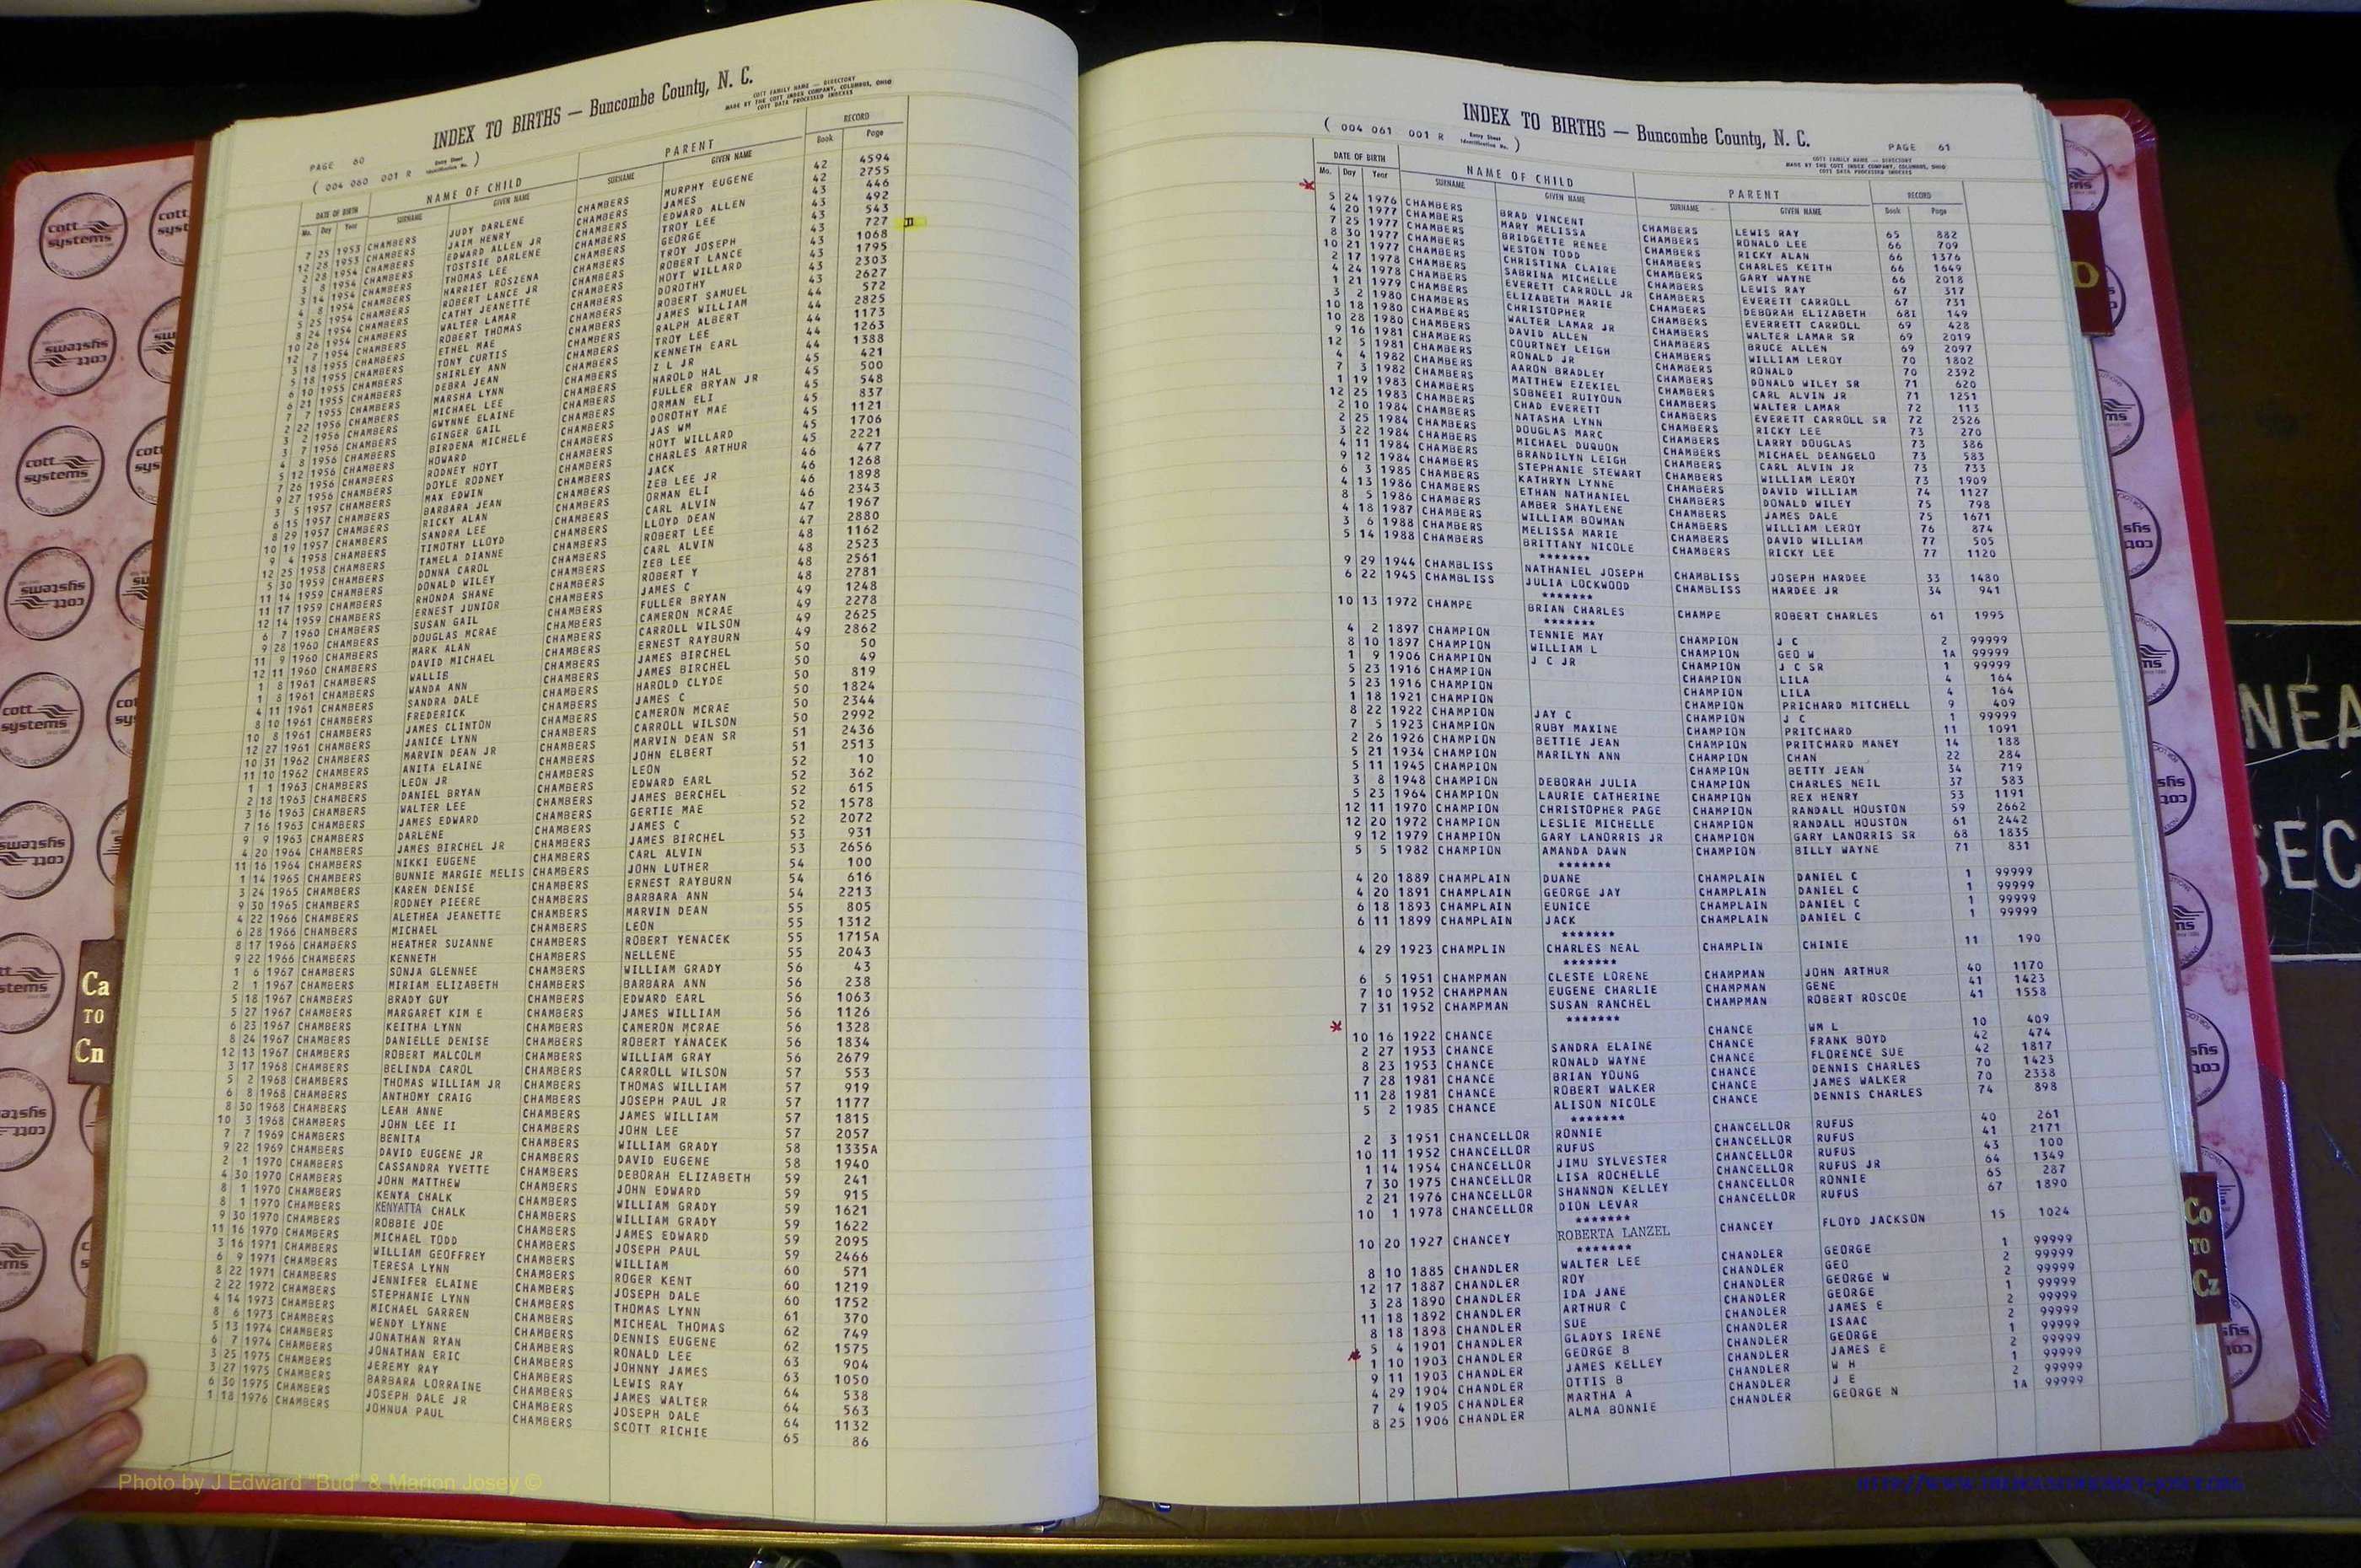 INDEX TO BIRTHS — Buncombe County, N. C.
COTT FAMILY NAME — DIRECTORY
MADE BY THE COTT INDEX COMPANY, COLUMBUS, OHIO
COTT DATA PROCESSED INDEXES
PAGE 60
( 004 060 001 R Entry Sheet Identification No. )
DATE OF BIRTH NAME OF CHILD PARENT RECORD
Mo. Day Year SURNAME GIVEN NAME SURNAME GIVEN NAME Book Page
7 25 1953 CHAMBERS JUDY DARLENE CHAMBERS MURPHY EUGENE 42 4594
12 28 1953 CHAMBERS JAIM HENRY CHAMBERS JAMES 42 2755
2 28 1954 CHAMBERS EDWARD ALLEN JR CHAMBERS EDWARD ALLEN 43 446
3 8 1954 CHAMBERS TOSTSIE DARLENE CHAMBERS TROY LEE 43 492
3 14 1954 CHAMBERS THOMAS LEE CHAMBERS GEORGE 43 543
4 8 1954 CHAMBERS HARRIET ROSZENA CHAMBERS TROY JOSEPH 43 727
5 25 1954 CHAMBERS ROBERT LANCE JR CHAMBERS ROBERT LANCE 43 1068
8 24 1954 CHAMBERS CATHY JEANETTE CHAMBERS HOYT WILLARD 43 1795
10 26 1954 CHAMBERS WALTER LAMAR CHAMBERS DOROTHY 43 2303
12 7 1954 CHAMBERS ROBERT THOMAS CHAMBERS ROBERT SAMUEL 43 2627
3 18 1955 CHAMBERS ETHEL MAE CHAMBERS JAMES WILLIAM 44 572
5 18 1955 CHAMBERS TONY CURTIS CHAMBERS RALPH ALBERT 44 2825
6 10 1955 CHAMBERS SHIRLEY ANN CHAMBERS TROY LEE 44 1173
6 21 1955 CHAMBERS DEBRA JEAN CHAMBERS KENNETH EARL 44 1263
7 7 1955 CHAMBERS MARSHA LYNN CHAMBERS Z L JR 44 1388
2 22 1956 CHAMBERS MICHAEL LEE CHAMBERS HAROLD HAL 45 421
3 2 1956 CHAMBERS GWYNNE ELAINE CHAMBERS FULLER BRYAN JR 45 500
3 7 1956 CHAMBERS GINGER GAIL CHAMBERS ORMAN ELI 45 548
4 8 1956 CHAMBERS BIRDENA MICHELE CHAMBERS DOROTHY MAE 45 837
5 12 1956 CHAMBERS HOWARD CHAMBERS JAS WM 45 1121
7 26 1956 CHAMBERS RODNEY HOYT CHAMBERS HOYT WILLARD 45 1706
9 27 1956 CHAMBERS DOYLE RODNEY CHAMBERS CHARLES ARTHUR 45 2221
3 5 1957 CHAMBERS MAX EDWIN CHAMBERS JACK 46 477
6 15 1957 CHAMBERS BARBARA JEAN CHAMBERS ZEB LEE JR 46 1268
8 29 1957 CHAMBERS RICKY ALAN CHAMBERS ORMAN ELI 46 1898
10 19 1957 CHAMBERS SANDRA LEE CHAMBERS CARL ALVIN 46 2343
9 4 1958 CHAMBERS TIMOTHY LLOYD CHAMBERS LLOYD DEAN 47 1967
12 25 1958 CHAMBERS TAMELA DIANNE CHAMBERS ROBERT LEE 47 2880
5 30 1959 CHAMBERS DONNA CAROL CHAMBERS CARL ALVIN 48 1162
11 14 1959 CHAMBERS DONALD WILEY CHAMBERS ZEB LEE 48 2523
11 17 1959 CHAMBERS RHONDA SHANE CHAMBERS ROBERT Y 48 2561
12 14 1959 CHAMBERS ERNEST JUNIOR CHAMBERS JAMES C 48 2781
6 7 1960 CHAMBERS SUSAN GAIL CHAMBERS FULLER BRYAN 49 1248
9 28 1960 CHAMBERS DOUGLAS MCRAE CHAMBERS CAMERON MCRAE 49 2278
11 9 1960 CHAMBERS MARK ALAN CHAMBERS CARROLL WILSON 49 2625
12 11 1960 CHAMBERS DAVID MICHAEL CHAMBERS ERNEST RAYBURN 49 2862
1 8 1961 CHAMBERS WALLIS CHAMBERS JAMES BIRCHEL 50 50
1 8 1961 CHAMBERS WANDA ANN CHAMBERS JAMES BIRCHEL 50 49
4 11 1961 CHAMBERS SANDRA DALE CHAMBERS HAROLD CLYDE 50 819
8 10 1961 CHAMBERS FREDERICK CHAMBERS JAMES C 50 1824
10 8 1961 CHAMBERS JAMES CLINTON CHAMBERS CAMERON MCRAE 50 2344
12 27 1961 CHAMBERS JANICE LYNN CHAMBERS CARROLL WILSON 50 2992
10 31 1962 CHAMBERS MARVIN DEAN JR CHAMBERS MARVIN DEAN SR 51 2436
11 10 1962 CHAMBERS ANITA ELAINE CHAMBERS JOHN ELBERT 51 2513
1 1 1963 CHAMBERS LEON JR CHAMBERS LEON 52 10
2 18 1963 CHAMBERS DANIEL BRYAN CHAMBERS EDWARD EARL 52 362
3 16 1963 CHAMBERS WALTER LEE CHAMBERS JAMES BERCHEL 52 615
7 16 1963 CHAMBERS JAMES EDWARD CHAMBERS GERTIE MAE 52 1578
9 9 1963 CHAMBERS DARLENE CHAMBERS JAMES C 52 2072
4 20 1964 CHAMBERS JAMES BIRCHEL JR CHAMBERS JAMES BIRCHEL 53 931
11 16 1964 CHAMBERS NIKKI EUGENE CHAMBERS CARL ALVIN 53 2656
1 14 1965 CHAMBERS BUNNIE MARGIE MELIS CHAMBERS JOHN LUTHER 54 100
3 24 1965 CHAMBERS KAREN DENISE CHAMBERS ERNEST RAYBURN 54 616
9 30 1965 CHAMBERS RODNEY PIEERE CHAMBERS BARBARA ANN 54 2213
4 22 1966 CHAMBERS ALETHEA JEANETTE CHAMBERS MARVIN DEAN 55 805
6 28 1966 CHAMBERS MICHAEL CHAMBERS LEON 55 1312
8 17 1966 CHAMBERS HEATHER SUZANNE CHAMBERS ROBERT YENACEK 55 1715A
9 22 1966 CHAMBERS KENNETH CHAMBERS NELLENE 55 2043
1 6 1967 CHAMBERS SONJA GLENNEE CHAMBERS WILLIAM GRADY 56 43
2 1 1967 CHAMBERS MIRIAM ELIZABETH CHAMBERS BARBARA ANN 56 238
5 18 1967 CHAMBERS BRADY GUY CHAMBERS EDWARD EARL 56 1063
5 27 1967 CHAMBERS MARGARET KIM E CHAMBERS JAMES WILLIAM 56 1126
6 23 1967 CHAMBERS KEITHA LYNN CHAMBERS CAMERON MCRAE 56 1328
8 24 1967 CHAMBERS DANIELLE DENISE CHAMBERS ROBERT YANACEK 56 1834
12 13 1967 CHAMBERS ROBERT MALCOLM CHAMBERS WILLIAM GRAY 56 2679
3 17 1968 CHAMBERS BELINDA CAROL CHAMBERS CARROLL WILSON 57 553
5 2 1968 CHAMBERS THOMAS WILLIAM JR CHAMBERS THOMAS WILLIAM 57 919
6 8 1968 CHAMBERS ANTHOMY CRAIG CHAMBERS JOSEPH PAUL JR 57 1177
8 30 1968 CHAMBERS LEAH ANNE CHAMBERS JAMES WILLIAM 57 1815
10 3 1968 CHAMBERS JOHN LEE II CHAMBERS JOHN LEE 57 2057
7 7 1969 CHAMBERS BENITA CHAMBERS WILLIAM GRADY 58 1335A
9 22 1969 CHAMBERS DAVID EUGENE JR CHAMBERS DAVID EUGENE 58 1940
2 1 1970 CHAMBERS CASSANDRA YVETTE CHAMBERS DEBORAH ELIZABETH 59 241
4 30 1970 CHAMBERS JOHN MATTHEW CHAMBERS JOHN EDWARD 59 915
8 1 1970 CHAMBERS KENYA CHALK CHAMBERS WILLIAM GRADY 59 1621
8 1 1970 CHAMBERS KENYATTA CHALK CHAMBERS WILLIAM GRADY 59 1622
9 30 1970 CHAMBERS ROBBIE JOE CHAMBERS JAMES EDWARD 59 2095
11 16 1970 CHAMBERS MICHAEL TODD CHAMBERS JOSEPH PAUL 59 2466
3 16 1971 CHAMBERS WILLIAM GEOFFREY CHAMBERS WILLIAM 60 571
6 9 1971 CHAMBERS TERESA LYNN CHAMBERS ROGER KENT 60 1219
8 22 1971 CHAMBERS JENNIFER ELAINE CHAMBERS JOSEPH DALE 60 1752
2 22 1972 CHAMBERS STEPHANIE LYNN CHAMBERS THOMAS LYNN 61 370
4 14 1973 CHAMBERS MICHAEL GARREN CHAMBERS MICHEAL THOMAS 62 749
8 6 1973 CHAMBERS WENDY LYNNE CHAMBERS DENNIS EUGENE 62 1575
5 13 1974 CHAMBERS JONATHAN RYAN CHAMBERS RONALD LEE 63 904
6 7 1974 CHAMBERS JONATHAN ERIC CHAMBERS JOHNNY JAMES 63 1050
3 25 1975 CHAMBERS JEREMY RAY CHAMBERS LEWIS RAY 64 538
3 27 1975 CHAMBERS BARBARA LORRAINE CHAMBERS JAMES WALTER 64 563
6 30 1975 CHAMBERS JOSEPH DALE JR CHAMBERS JOSEPH DALE 64 1132
1 18 1976 CHAMBERS JOHNUA PAUL CHAMBERS SCOTT RICHIE 65 86
INDEX TO BIRTHS — Buncombe County, N. C.
( 004 061 001 R Entry Sheet Identification No. )
PAGE 61
COTT FAMILY NAME — DIRECTORY
MADE BY THE COTT INDEX COMPANY, COLUMBUS, OHIO
COTT DATA PROCESSED INDEXES
DATE OF BIRTH NAME OF CHILD PARENT RECORD
Mo. Day Year SURNAME GIVEN NAME SURNAME GIVEN NAME Book Page
5 24 1976 CHAMBERS BRAD VINCENT CHAMBERS LEWIS RAY 65 882
4 20 1977 CHAMBERS MARY MELISSA CHAMBERS RONALD LEE 66 709
7 25 1977 CHAMBERS BRIDGETTE RENEE CHAMBERS RICKY ALAN 66 1376
8 30 1977 CHAMBERS WESTON TODD CHAMBERS CHARLES KEITH 66 1649
10 21 1977 CHAMBERS CHRISTINA CLAIRE CHAMBERS GARY WAYNE 66 2018
2 17 1978 CHAMBERS SABRINA MICHELLE CHAMBERS LEWIS RAY 67 317
4 24 1978 CHAMBERS EVERETT CARROLL JR CHAMBERS EVERETT CARROLL 67 731
1 21 1979 CHAMBERS ELIZABETH MARIE CHAMBERS DEBORAH ELIZABETH 68I 149
3 2 1980 CHAMBERS CHRISTOPHER CHAMBERS EVERRETT CARROLL 69 428
10 18 1980 CHAMBERS WALTER LAMAR JR CHAMBERS WALTER LAMAR SR 69 2019
10 28 1980 CHAMBERS DAVID ALLEN CHAMBERS BRUCE ALLEN 69 2097
9 16 1981 CHAMBERS COURTNEY LEIGH CHAMBERS WILLIAM LEROY 70 1802
12 5 1981 CHAMBERS RONALD JR CHAMBERS RONALD 70 2392
4 4 1982 CHAMBERS AARON BRADLEY CHAMBERS DONALD WILEY SR 71 620
7 3 1982 CHAMBERS MATTHEW EZEKIEL CHAMBERS CARL ALVIN JR 71 1251
1 19 1983 CHAMBERS SOBNEEI RUIYOUN CHAMBERS WALTER LAMAR 72 113
12 25 1983 CHAMBERS CHAD EVERETT CHAMBERS EVERETT CARROLL SR 72 2526
2 10 1984 CHAMBERS NATASHA LYNN CHAMBERS RICKY LEE 73 270
2 25 1984 CHAMBERS DOUGLAS MARC CHAMBERS LARRY DOUGLAS 73 386
3 22 1984 CHAMBERS MICHAEL DUQUON CHAMBERS MICHAEL DEANGELO 73 583
4 11 1984 CHAMBERS BRANDILYN LEIGH CHAMBERS CARL ALVIN JR 73 733
9 12 1984 CHAMBERS STEPHANIE STEWART CHAMBERS WILLIAM LEROY 73 1909
6 3 1985 CHAMBERS KATHRYN LYNNE CHAMBERS DAVID WILLIAM 74 1127
4 13 1986 CHAMBERS ETHAN NATHANIEL CHAMBERS DONALD WILEY 75 798
8 5 1986 CHAMBERS AMBER SHAYLENE CHAMBERS JAMES DALE 75 1671
4 18 1987 CHAMBERS WILLIAM BOWMAN CHAMBERS WILLIAM LEROY 76 874
3 6 1988 CHAMBERS MELISSA MARIE CHAMBERS DAVID WILLIAM 77 505
5 14 1988 CHAMBERS BRITTANY NICOLE CHAMBERS RICKY LEE 77 1120
*******
9 29 1944 CHAMBLISS NATHANIEL JOSEPH CHAMBLISS JOSEPH HARDEE 33 1480
6 22 1945 CHAMBLISS JULIA LOCKWOOD CHAMBLISS HARDEE JR 34 941
*******
10 13 1972 CHAMPE BRIAN CHARLES CHAMPE ROBERT CHARLES 61 1995
*******
4 2 1897 CHAMPION TENNIE MAY CHAMPION J C 2 99999
8 10 1897 CHAMPION WILLIAM L CHAMPION GEO W 1A 99999
1 9 1906 CHAMPION J C JR CHAMPION J C SR 1 99999
5 23 1916 CHAMPION CHAMPION LILA 4 164
5 23 1916 CHAMPION CHAMPION LILA 4 164
1 18 1921 CHAMPION CHAMPION PRICHARD MITCHELL 9 409
8 22 1922 CHAMPION JAY C CHAMPION J C 1 99999
7 5 1923 CHAMPION RUBY MAXINE CHAMPION PRITCHARD 11 1091
2 26 1926 CHAMPION BETTIE JEAN CHAMPION PRITCHARD MANEY 14 188
5 21 1934 CHAMPION MARILYN ANN CHAMPION CHAN 22 284
5 11 1945 CHAMPION CHAMPION BETTY JEAN 34 719
3 8 1948 CHAMPION DEBORAH JULIA CHAMPION CHARLES NEIL 37 583
5 23 1964 CHAMPION LAURIE CATHERINE CHAMPION REX HENRY 53 1191
12 11 1970 CHAMPION CHRISTOPHER PAGE CHAMPION RANDALL HOUSTON 59 2662
12 20 1972 CHAMPION LESLIE MICHELLE CHAMPION RANDALL HOUSTON 61 2442
9 12 1979 CHAMPION GARY LANORRIS JR CHAMPION GARY LANORRIS SR 68 1835
5 5 1982 CHAMPION AMANDA DAWN CHAMPION BILLY WAYNE 71 831
*******
4 20 1889 CHAMPLAIN DUANE CHAMPLAIN DANIEL C 1 99999
4 20 1891 CHAMPLAIN GEORGE JAY CHAMPLAIN DANIEL C 1 99999
6 18 1893 CHAMPLAIN EUNICE CHAMPLAIN DANIEL C 1 99999
6 11 1899 CHAMPLAIN JACK CHAMPLAIN DANIEL C 1 99999
*******
4 29 1923 CHAMPLIN CHARLES NEAL CHAMPLIN CHINIE 11 190
*******
6 5 1951 CHAMPMAN CLESTE LORENE CHAMPMAN JOHN ARTHUR 40 1170
7 10 1952 CHAMPMAN EUGENE CHARLIE CHAMPMAN GENE 41 1423
7 31 1952 CHAMPMAN SUSAN RANCHEL CHAMPMAN ROBERT ROSCOE 41 1558
*******
10 16 1922 CHANCE CHANCE WM L 10 409
2 27 1953 CHANCE SANDRA ELAINE CHANCE FRANK BOYD 42 474
8 23 1953 CHANCE RONALD WAYNE CHANCE FLORENCE SUE 42 1817
7 28 1981 CHANCE BRIAN YOUNG CHANCE DENNIS CHARLES 70 1423
11 28 1981 CHANCE ROBERT WALKER CHANCE JAMES WALKER 70 2338
5 2 1985 CHANCE ALISON NICOLE CHANCE DENNIS CHARLES 74 898
*******
2 3 1951 CHANCELLOR RONNIE CHANCELLOR RUFUS 40 261
10 11 1952 CHANCELLOR RUFUS CHANCELLOR RUFUS 41 2171
1 14 1954 CHANCELLOR JIMU SYLVESTER CHANCELLOR RUFUS 43 100
7 30 1975 CHANCELLOR LISA ROCHELLE CHANCELLOR RUFUS JR 64 1349
2 21 1976 CHANCELLOR SHANNON KELLEY CHANCELLOR RONNIE 65 287
10 1 1978 CHANCELLOR DION LEVAR CHANCELLOR RUFUS 67 1890
*******
10 20 1927 CHANCEY ROBERTA LANZEL CHANCEY FLOYD JACKSON 15 1024
*******
8 10 1885 CHANDLER WALTER LEE CHANDLER GEORGE 1 99999
12 17 1887 CHANDLER ROY CHANDLER GEO 2 99999
3 28 1890 CHANDLER IDA JANE CHANDLER GEORGE W 2 99999
11 18 1892 CHANDLER ARTHUR C CHANDLER GEORGE 1 99999
8 18 1898 CHANDLER SUE CHANDLER JAMES E 2 99999
5 4 1901 CHANDLER GLADYS IRENE CHANDLER ISAAC 99999
1 10 1903 CHANDLER GEORGE B CHANDLER GEORGE 1 99999
9 11 1903 CHANDLER JAMES KELLEY CHANDLER JAMES E 2 99999
4 29 1904 CHANDLER OTTIS B CHANDLER W H 1 99999
7 4 1905 CHANDLER MARTHA A CHANDLER J E 2 99999
8 25 1906 CHANDLER ALMA BONNIE CHANDLER GEORGE N 1A 99999
Ca
TO
Cn
Co
TO
Cz
D
cott
systems
NEA
SEC
Photo by J Edward "Bud" & Marion Josey ©
HTTP://WWW.THEHOUSEOFJOSSEY-JOSEY.ORG